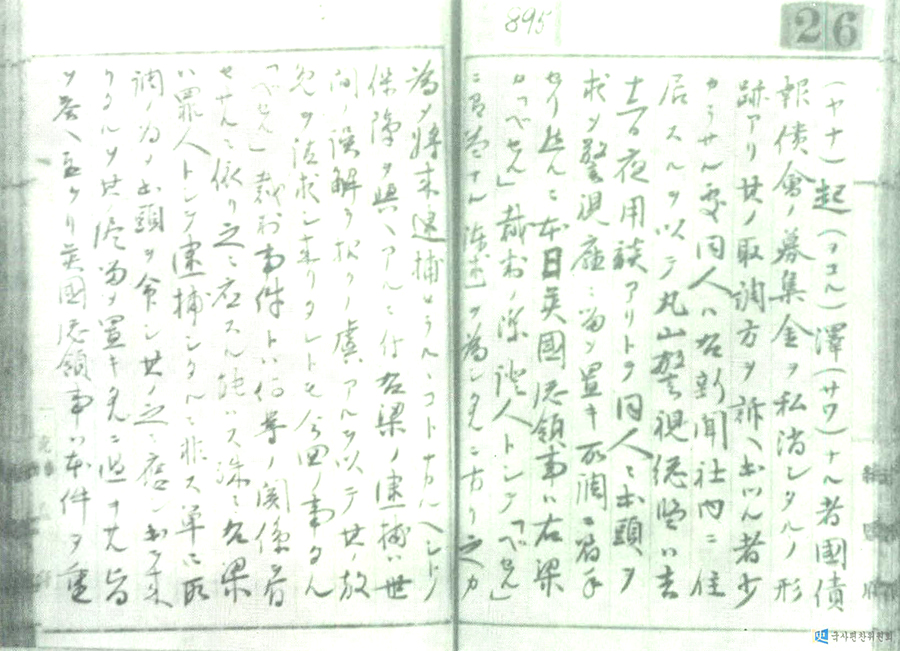 895
26
（ヤナ）起（ヲコル）澤（サワ）ナル者國債
報債會ノ募集金ヲ私消シタルノ形
跡アリ其ノ取調方ヲ訴ヘ出ツル者少
カラサル處同人ハ右新聞社内ニ住
居スルヲ以テ丸山警視總監ハ去
夜用談アリトテ同人ニ出頭ヲ
求メ警視廳ニ留メ置キ取調ニ着手
セリ然ルニ本日英國總領事ハ右梁
カ「ベセル」裁判ノ際證人トシテ「ベセル」
ニ有益ナル陳述ヲ為シタルニ方リ之カ
為メ將来逮捕セラルルコトナカルヘシトノ
保障ヲ與ヘアルニ付右梁ノ逮捕ハ世
間ノ誤解ヲ招クノ虞アルヲ以テ其ノ放
免ヲ請求シ来リタレトモ今回ノ事タル
「ベセル」裁判事件トハ何等ノ關係ヲ有
セサルニ依リ之ニ應スル能ハス殊ニ右梁
ハ罪人トシテ逮捕シタルニ非ス單ニ取
調ノ為メ出頭ヲ命シ其ノ之ニ應シ出テ来
リタルヲ其侭留メ置キタルニ過キサル旨
ヲ答ヘ置ケリ英國總領事ハ本件ヲ重
국사편찬위원회